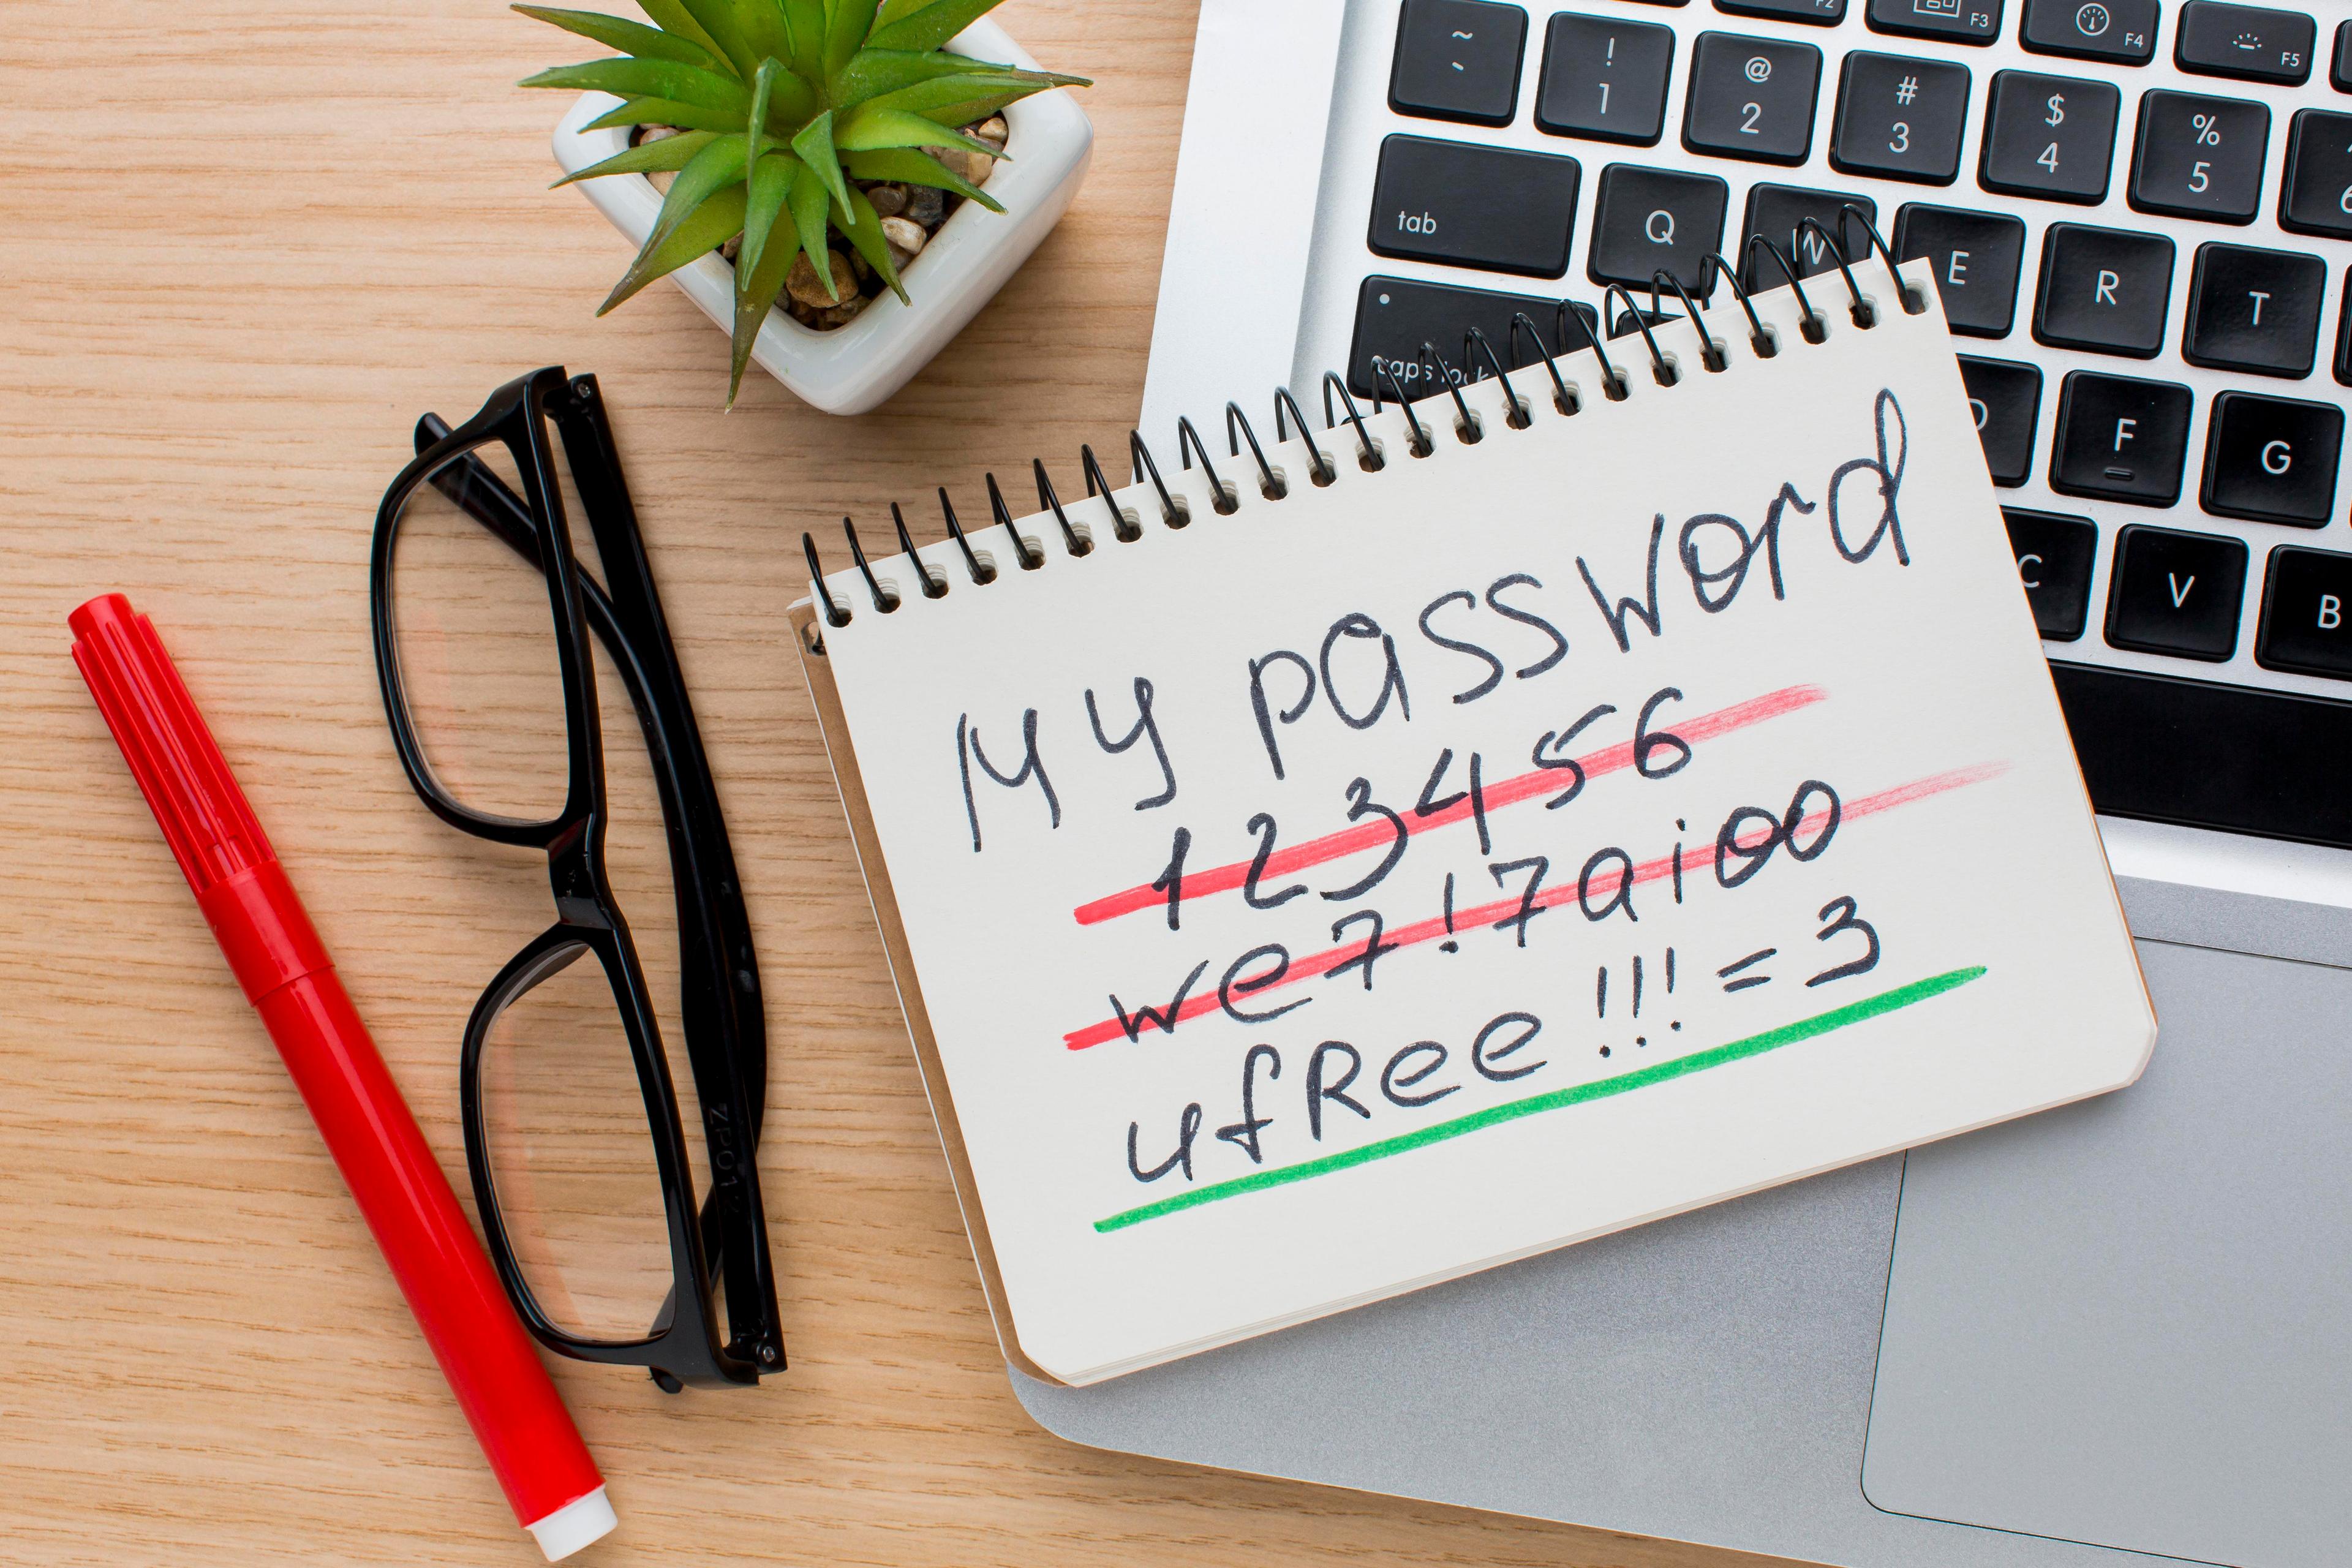 F2 F3 F4 F5
~ ! @ # $ %
` 1 2 3 4 5
tab Q W E R T
caps lock D F G
C V B
My password
123456
we7!7aioo
ufRee!!!=3